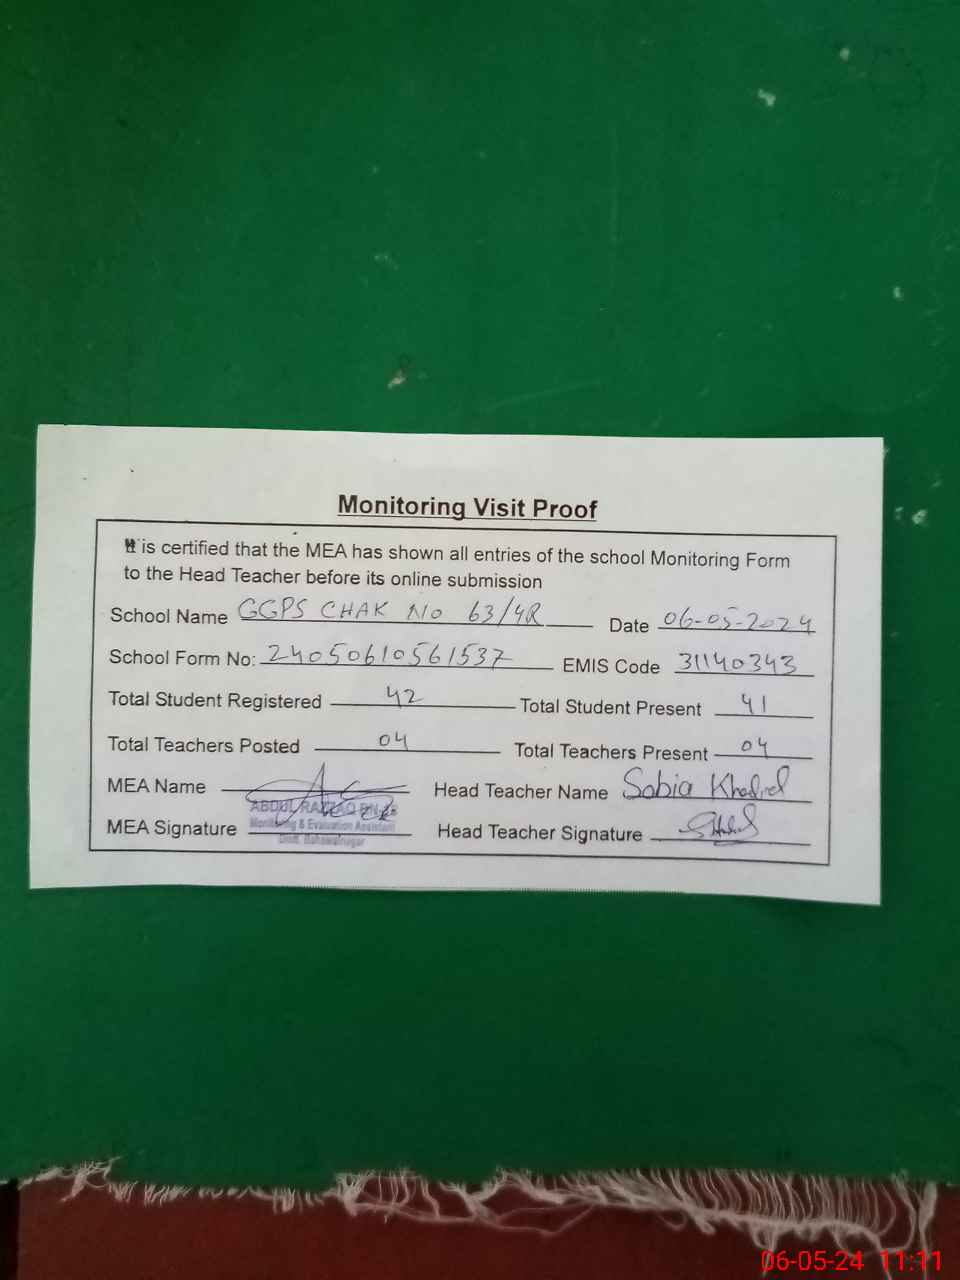 Monitoring Visit Proof
It is certified that the MEA has shown all entries of the school Monitoring Form
to the Head Teacher before its online submission
School Name GGPS CHAK No 63/4R Date 06-05-2024
School Form No: 24050610561537 EMIS Code 31140343
Total Student Registered 42 Total Student Present 41
Total Teachers Posted 04 Total Teachers Present 04
MEA Name Head Teacher Name Sobia
ABDUL RAZZAQ
Monitoring & Evaluation Assistant
MEA Signature Head Teacher Signature
Distt. Bahawalnagar
06-05-24 11:11